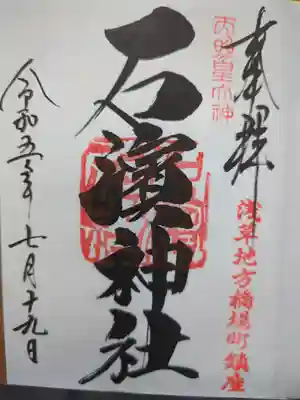 奉拝
天照皇大神
浅草地方橋場町鎮座
石濱神社
令和五年七月十九日